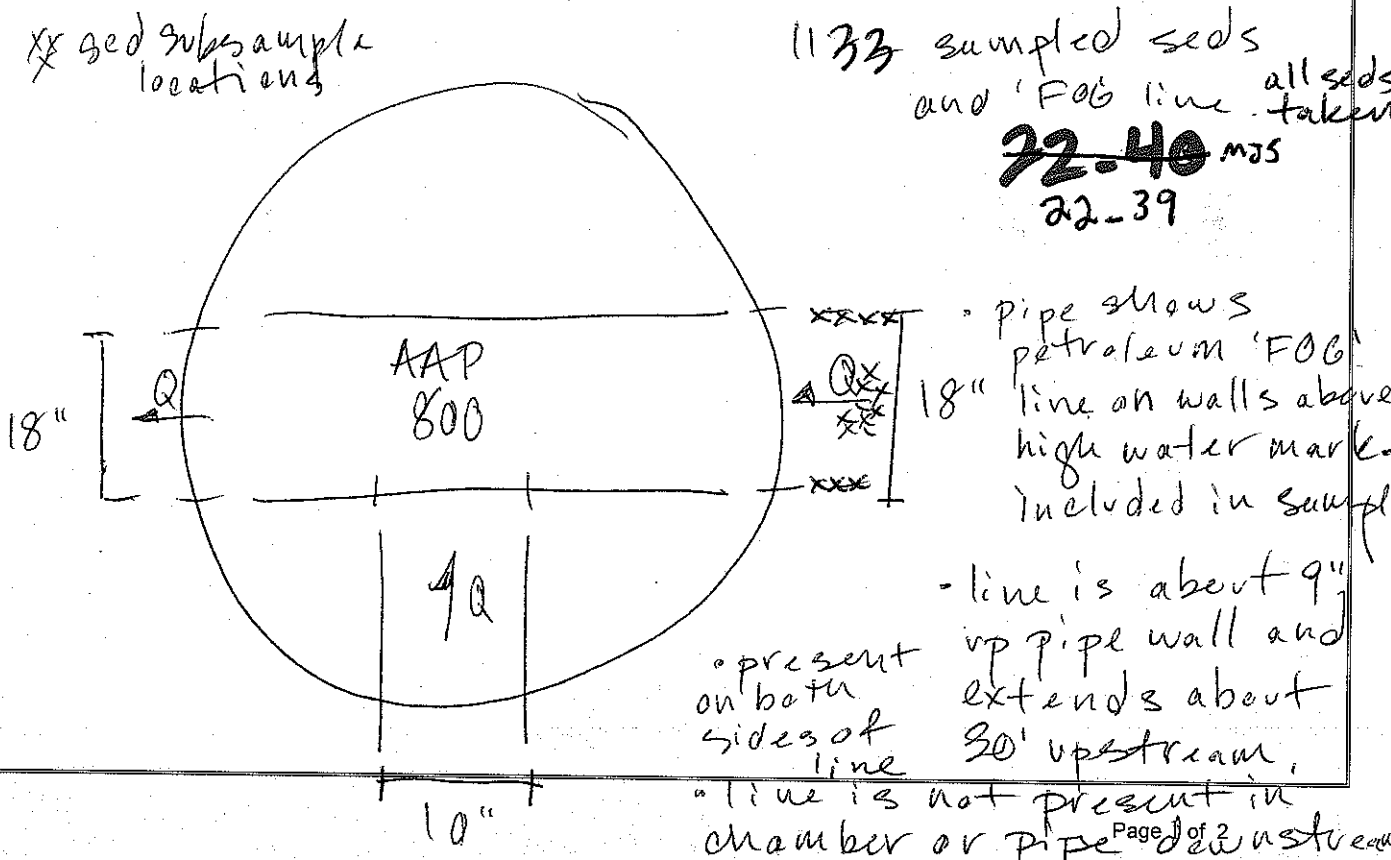 xx sed subsample
x locations
1133 sampled seds
and 'FOG' line all seds
taken
22-40 MJS
22-39
AAP
800
Q
18"
xxxx
Qx
xx
xx
xxx
18"
Q
10"
• pipe shows
petroleum 'FOG'
line on walls above
high water mark.
included in sampl
- line is about 9"
up pipe wall and
extends about
30' upstream.
• present
on both
sides of
line
• line is not present in
chamber or pipe downstream
Page 1 of 2